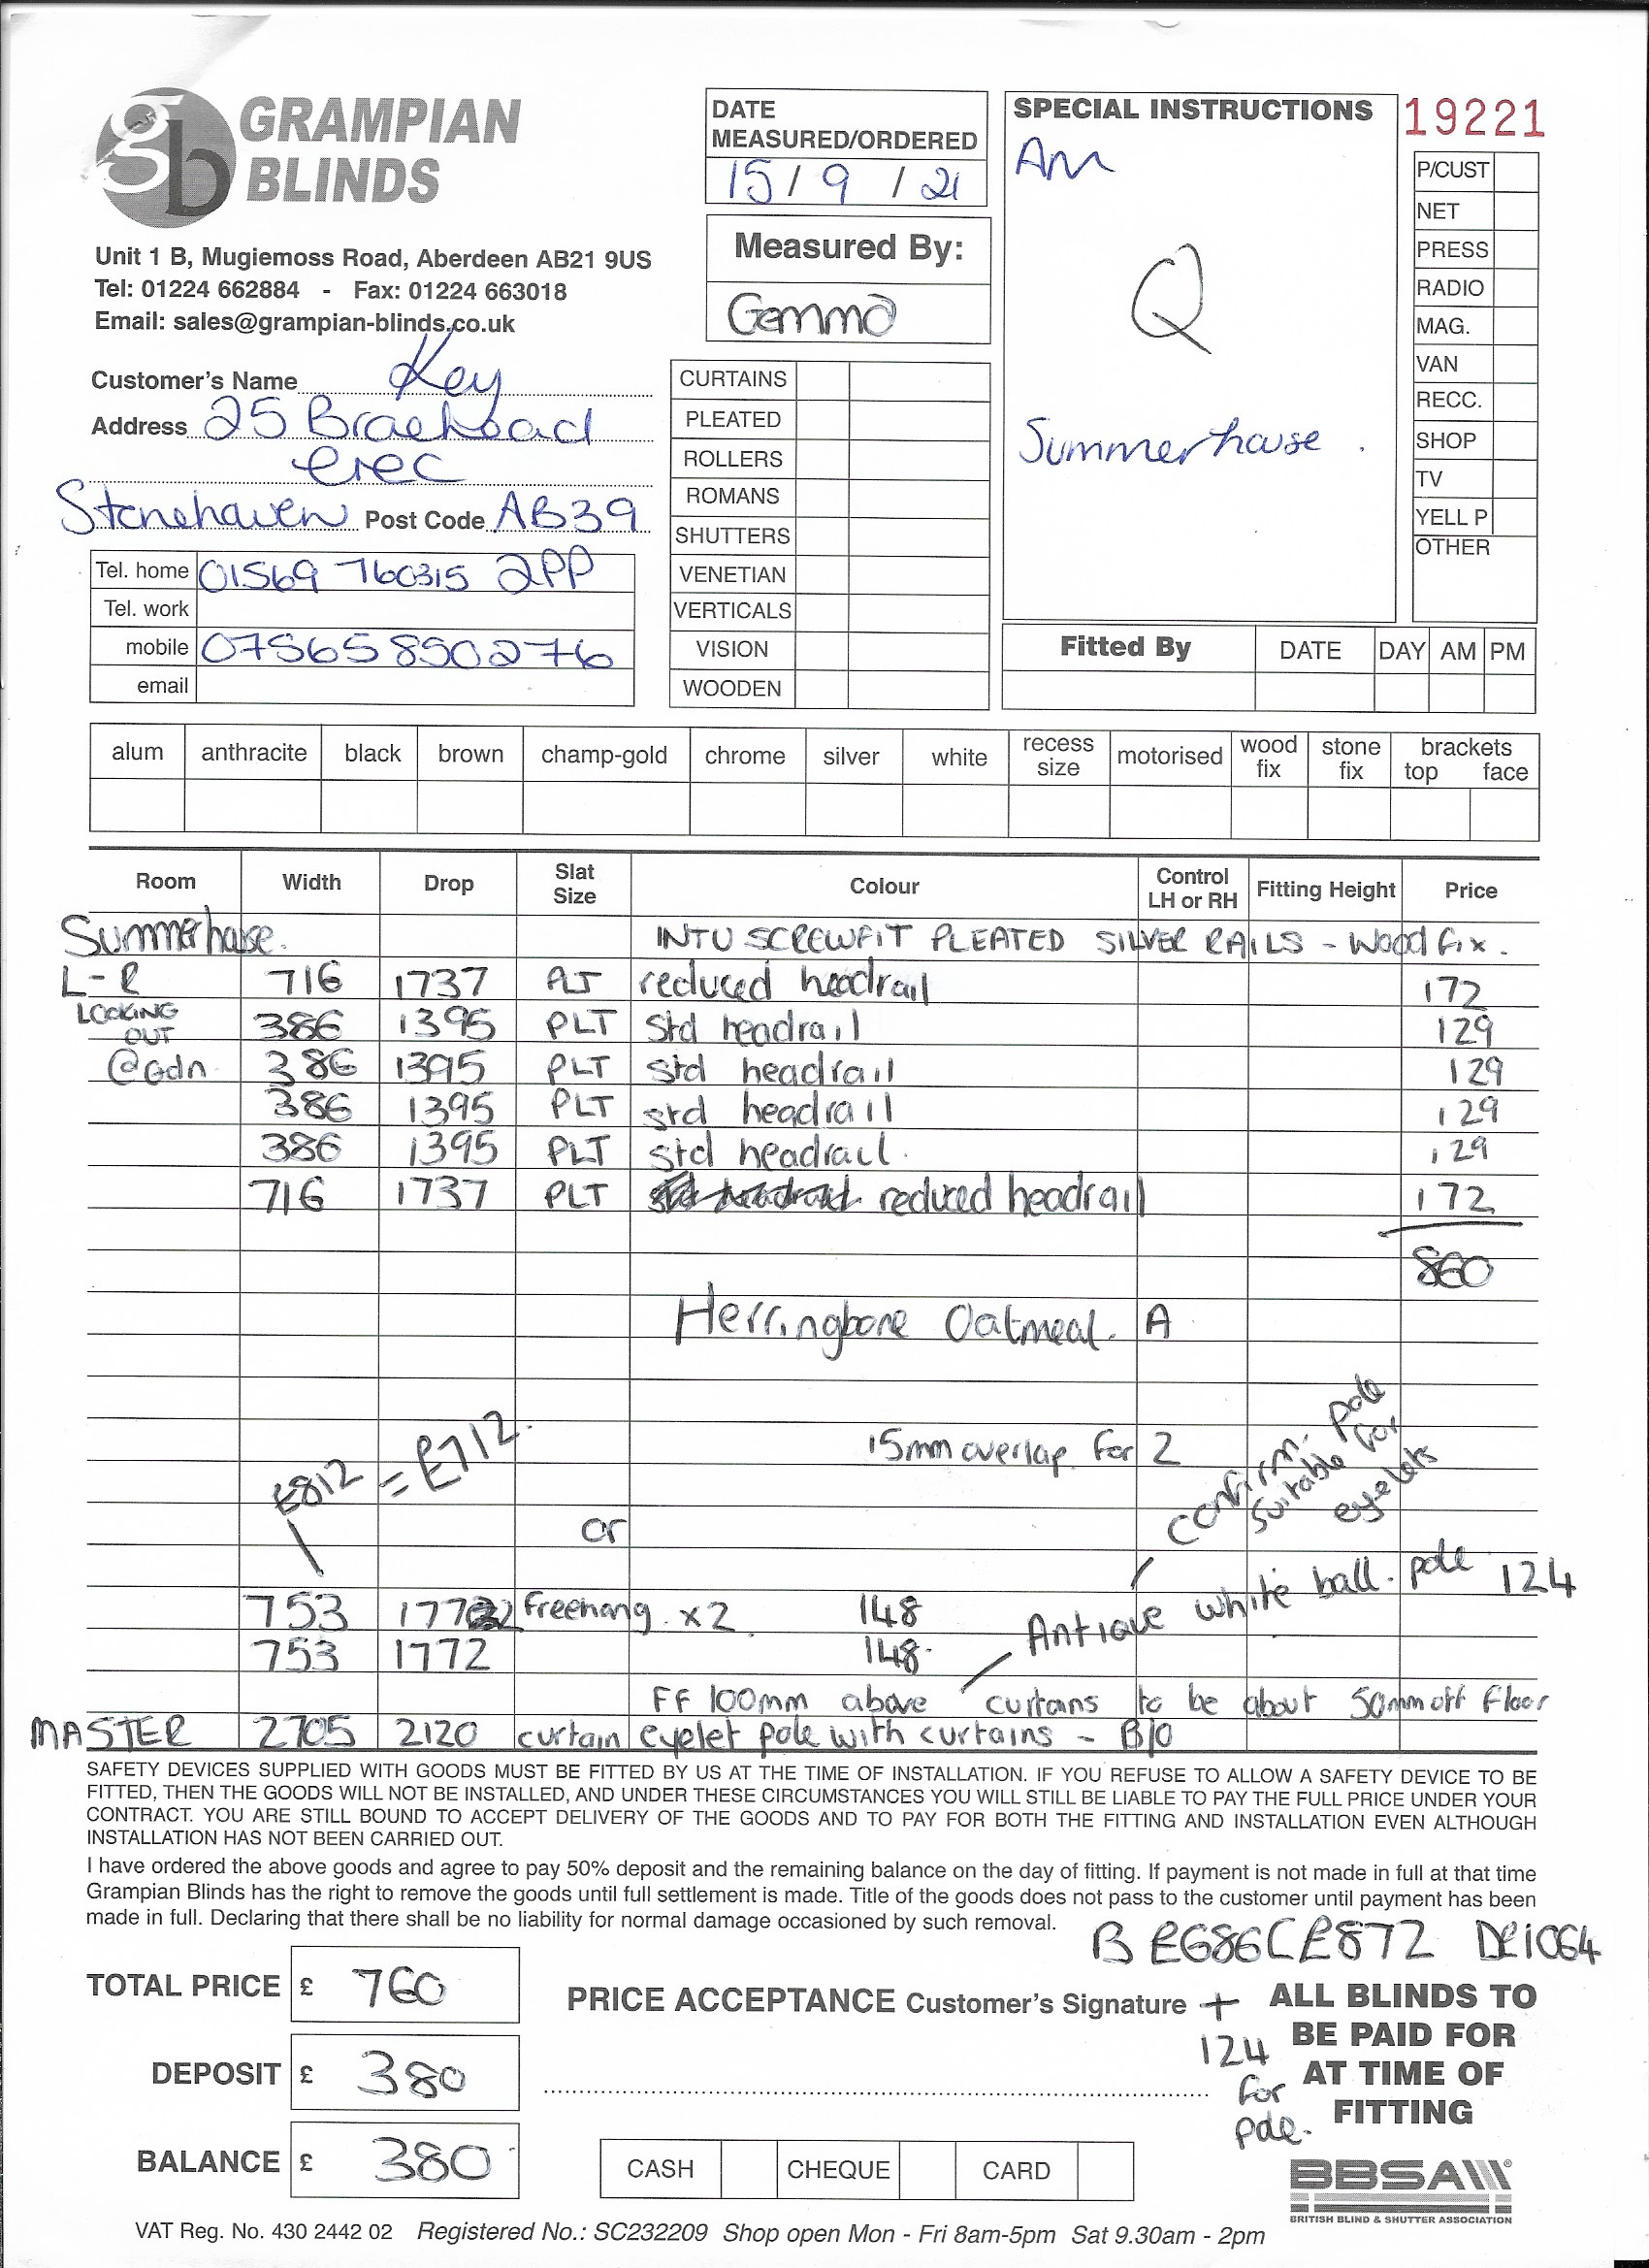 gb GRAMPIAN BLINDS
Unit 1 B, Mugiemoss Road, Aberdeen AB21 9US
Tel: 01224 662884 - Fax: 01224 663018
Email: sales@grampian-blinds.co.uk
Customer's Name Key
Address 25 Braehead
Crec
Stonehaven Post Code AB39
Tel. home 01569 760315 2PP
Tel. work
mobile 07565 850276
email
DATE MEASURED/ORDERED
15 / 9 / 21
Measured By:
Gemma
CURTAINS
PLEATED
ROLLERS
ROMANS
SHUTTERS
VENETIAN
VERTICALS
VISION
WOODEN
SPECIAL INSTRUCTIONS
AM
Q
Summerhouse.
19221
P/CUST
NET
PRESS
RADIO
MAG.
VAN
RECC.
SHOP
TV
YELL P
OTHER
Fitted By DATE DAY AM PM
alum anthracite black brown champ-gold chrome silver white recess size motorised wood fix stone fix brackets top face
Room Width Drop Slat Size Colour Control LH or RH Fitting Height Price
Summerhouse. INTU SCREWFIT PLEATED SILVER RAILS - Wood fix.
L-R 716 1737 PLT reduced headrail 172
LOOKING OUT 386 1395 PLT std headrail 129
@Gdn 386 1395 PLT std headrail 129
386 1395 PLT std headrail 129
386 1395 PLT std headrail. 129
716 1737 PLT std headrail reduced headrail 172
860
Herringbone Oatmeal. A
15mm overlap for 2
£812 = £712.
or
confirm. pole suitable for eyelets
753 1772 Freehang x2 148
753 1772 148.
Antique white ball. pole 124
FF 100mm above curtans to be about 50mm off floor
MASTER 2705 2120 curtain eyelet pole with curtains - B/O
SAFETY DEVICES SUPPLIED WITH GOODS MUST BE FITTED BY US AT THE TIME OF INSTALLATION. IF YOU REFUSE TO ALLOW A SAFETY DEVICE TO BE
FITTED, THEN THE GOODS WILL NOT BE INSTALLED, AND UNDER THESE CIRCUMSTANCES YOU WILL STILL BE LIABLE TO PAY THE FULL PRICE UNDER YOUR
CONTRACT. YOU ARE STILL BOUND TO ACCEPT DELIVERY OF THE GOODS AND TO PAY FOR BOTH THE FITTING AND INSTALLATION EVEN ALTHOUGH
INSTALLATION HAS NOT BEEN CARRIED OUT.
I have ordered the above goods and agree to pay 50% deposit and the remaining balance on the day of fitting. If payment is not made in full at that time
Grampian Blinds has the right to remove the goods until full settlement is made. Title of the goods does not pass to the customer until payment has been
made in full. Declaring that there shall be no liability for normal damage occasioned by such removal.
B £686 C £872 D £1064
+ 124 for pole.
TOTAL PRICE £ 760
DEPOSIT £ 380
BALANCE £ 380
PRICE ACCEPTANCE Customer's Signature
CASH CHEQUE CARD
ALL BLINDS TO
BE PAID FOR
AT TIME OF
FITTING
BBSA
BRITISH BLIND & SHUTTER ASSOCIATION
VAT Reg. No. 430 2442 02 Registered No.: SC232209 Shop open Mon - Fri 8am-5pm Sat 9.30am - 2pm